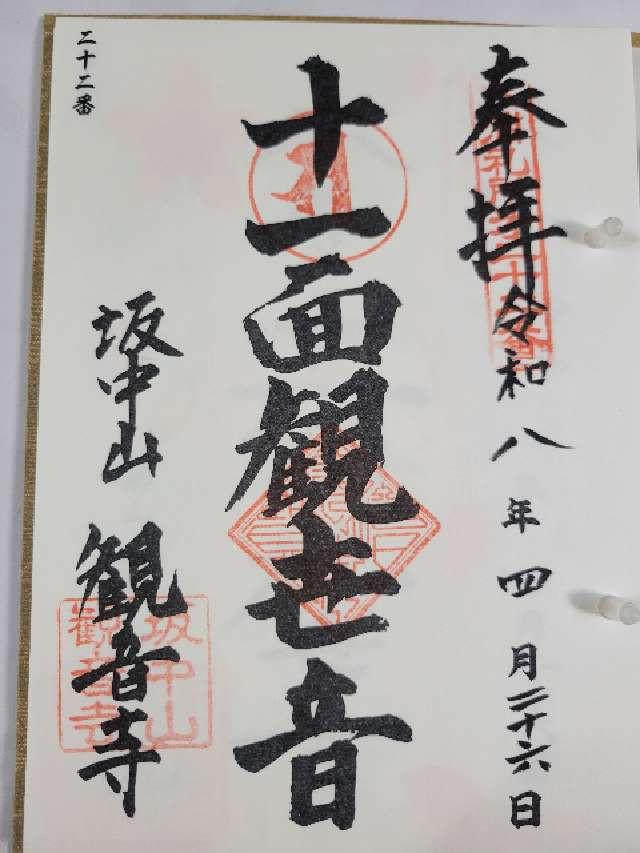 奉拝 令和八年四月二十六日
十一面観世音
二十二番
坂中山 観音寺
坂中山
観音寺